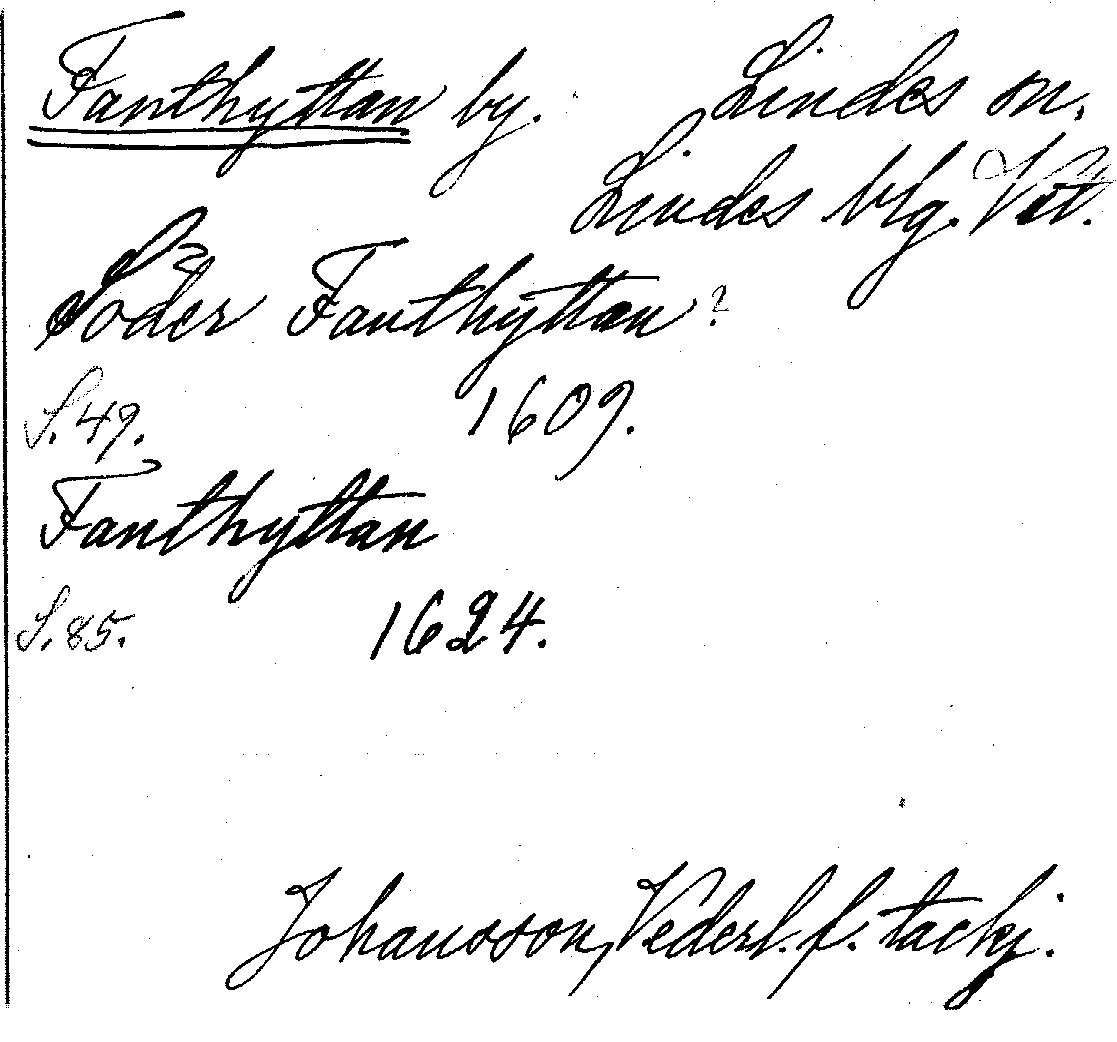 Fanthyttan by. Lindes sn.
Lindes blg. Vstm.
Söder Fanthyttan?
S. 49. 1609.
Fanthyttan
S. 85. 1624.
Johansson, Vederl. f. tackj.